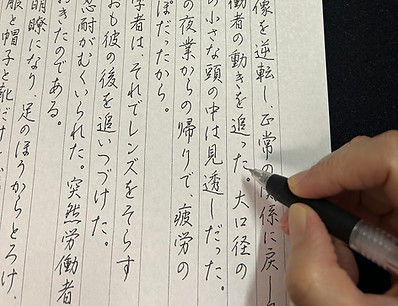 像を逆転し、正常の関係に戻し
働者の動きを追った。大口径の
の小さな頭の中は見透しだった。
の夜業からの帰りで、疲労の
ぽだったから
学者は、それでレンズをそらす
おも彼の後を追いつづけた。
忍耐がむくいられた。突然労働者
おきたのである。
明瞭になり、足のほうからとろけ、
服と帽子と靴だけ